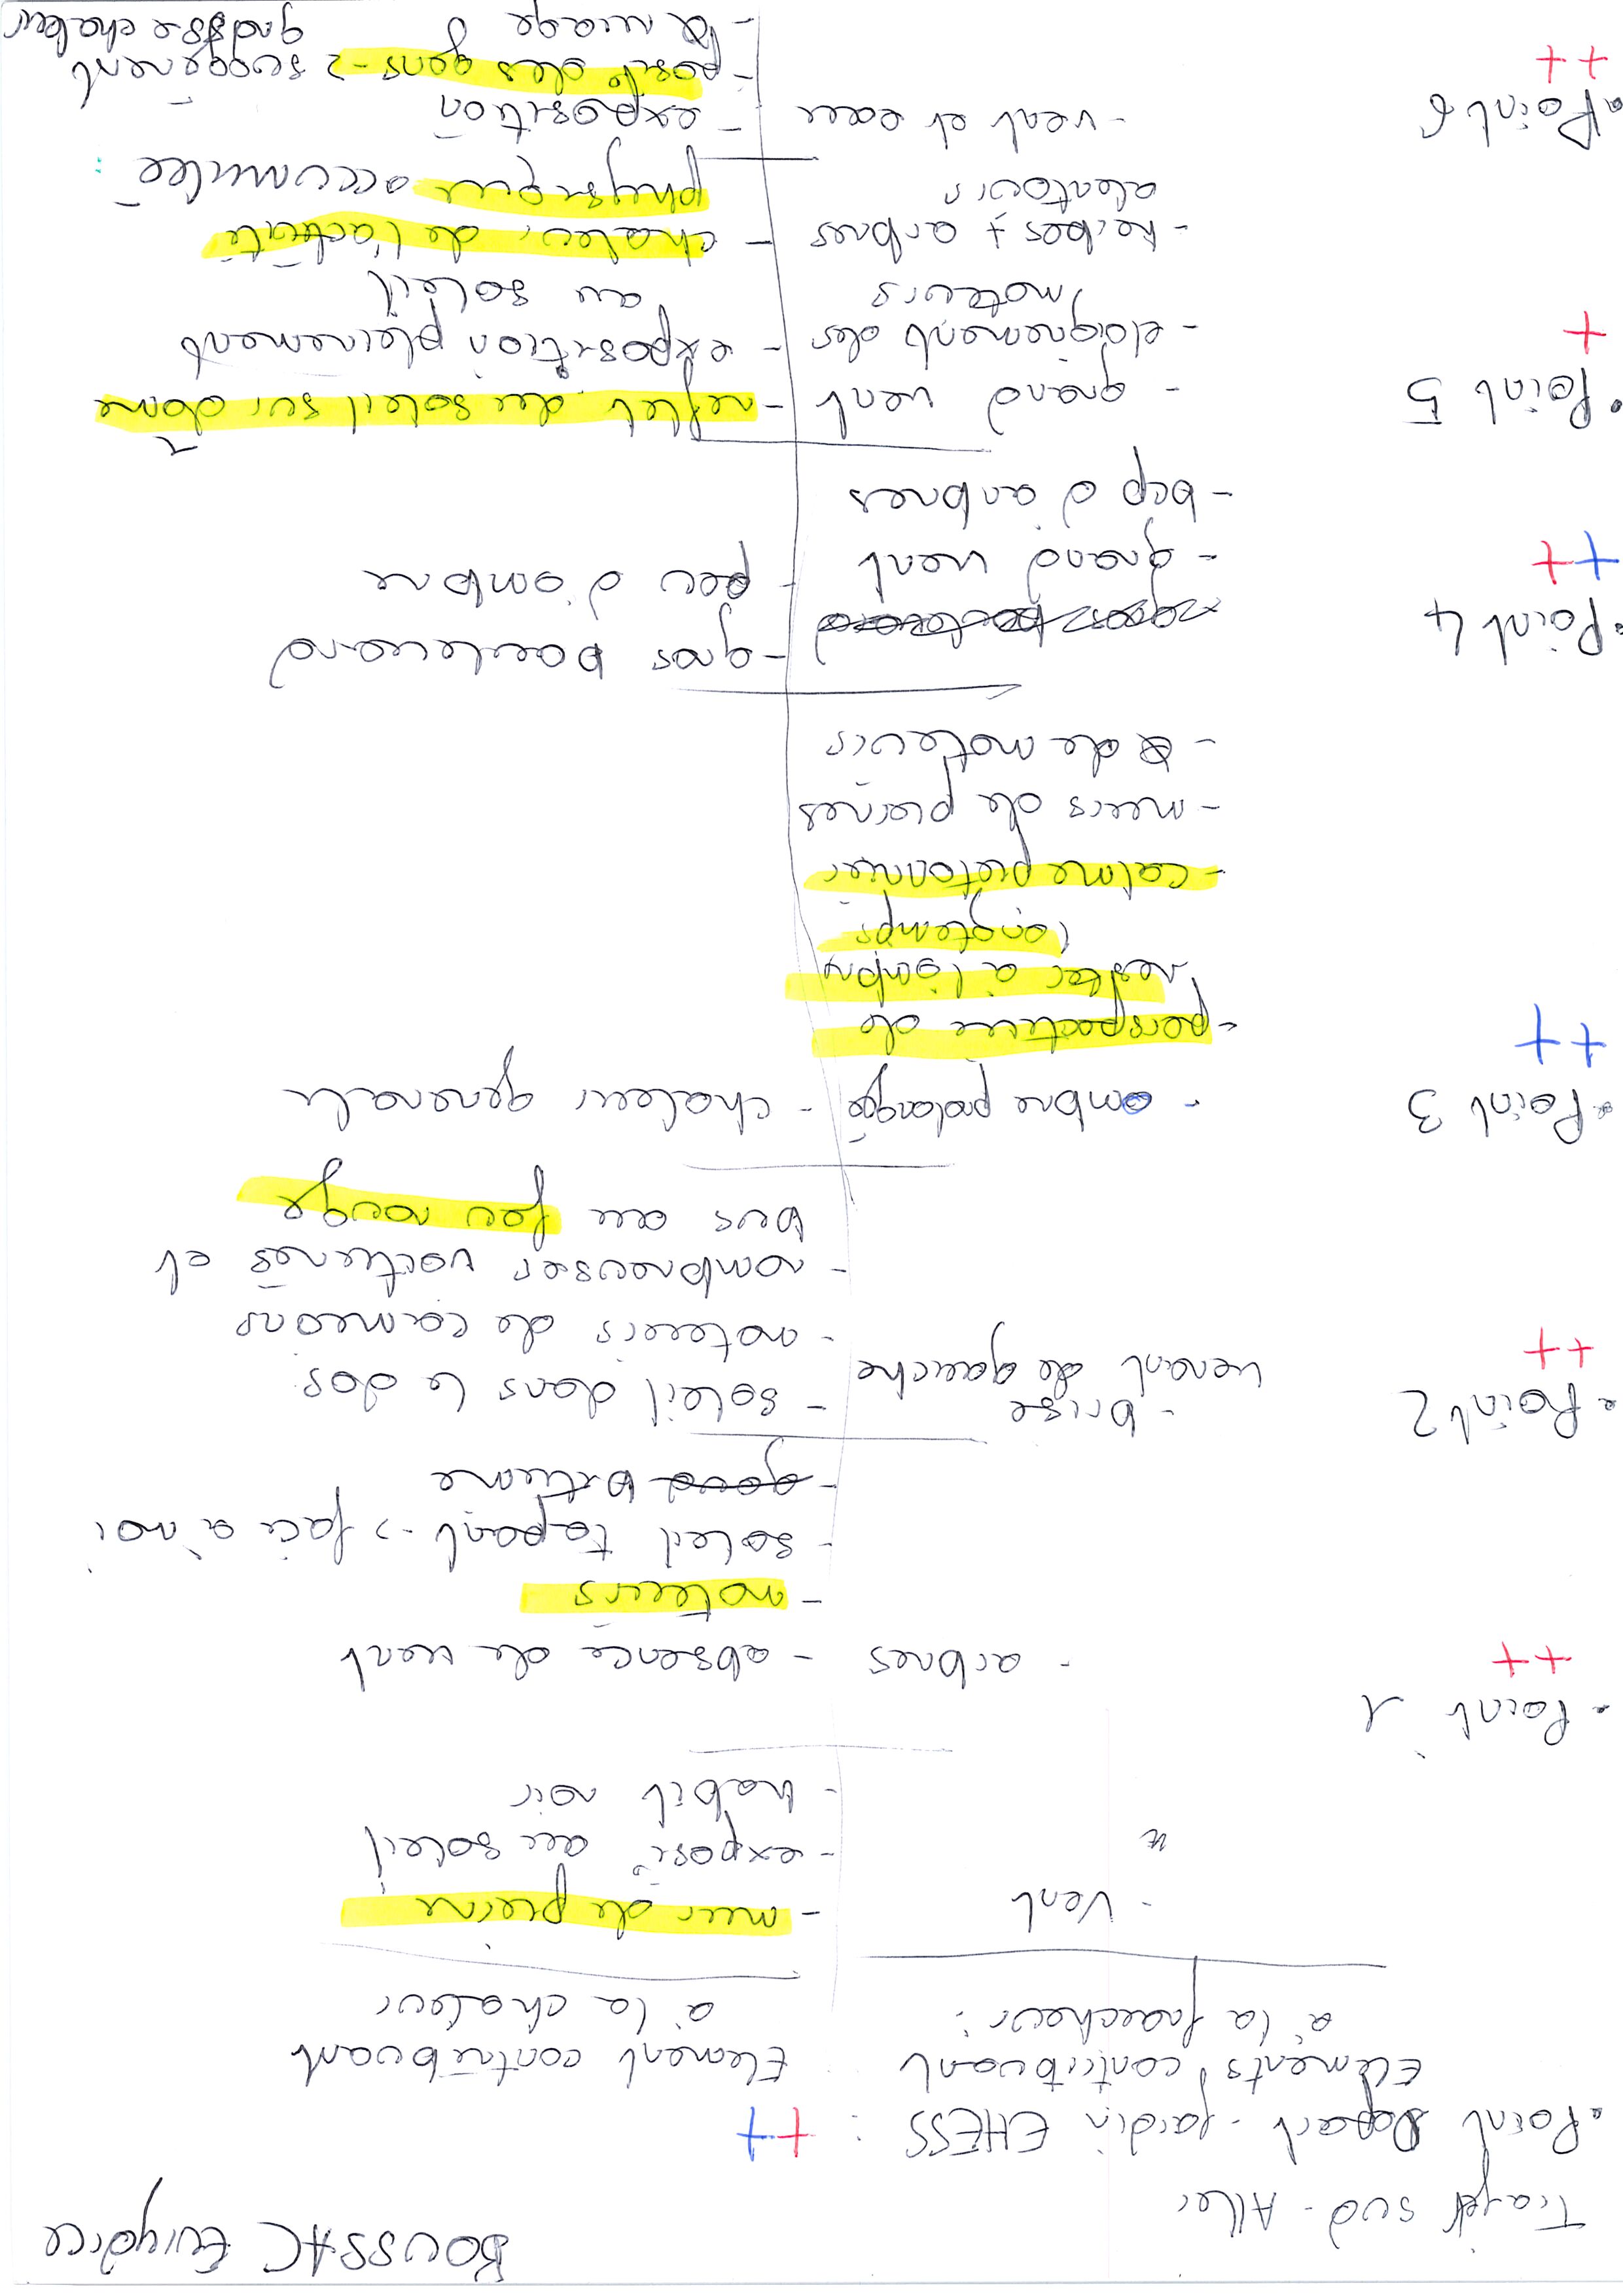 BOUSSAC Eurydice
Trajet sud - Aller
• Point Départ - jardin EHESS : ++
Eléments contribuant à la fraicheur :
- Vent
"
Element contribuant à la chaleur
- mur de pierre
- exposé au soleil
- habit noir
- Point 1
++
- arbres
- absence de vent
- moteurs
- soleil tapant -> face à moi
- bitume
• Point 2
++
- brise
venant de gauche
- soleil dans le dos
- moteurs de camions
- nombreuses voitures et
bus au feu rouge
• Point 3
++
- ombre prolongé
- perspective de
rester à l'ombre
longtemps
- calme piétonnier
- murs de pierres
- Ø de moteurs
- chaleur générale
• Point 4
++
- grand vent
- bcp d'arbres
- gros boulevard
- peu d'ombre
• Point 5
+
- grand vent
- éloignement des
moteurs
- herbes + arbres
alentours
- reflet du soleil sur dôme
- exposition pleinement
au soleil
- chaleur de l'activité
physique accumulée
• Point 6
++
- vent et eau
- exposition
- posit° des gens -> suggèrent
grosse chaleur
- Ø nuage